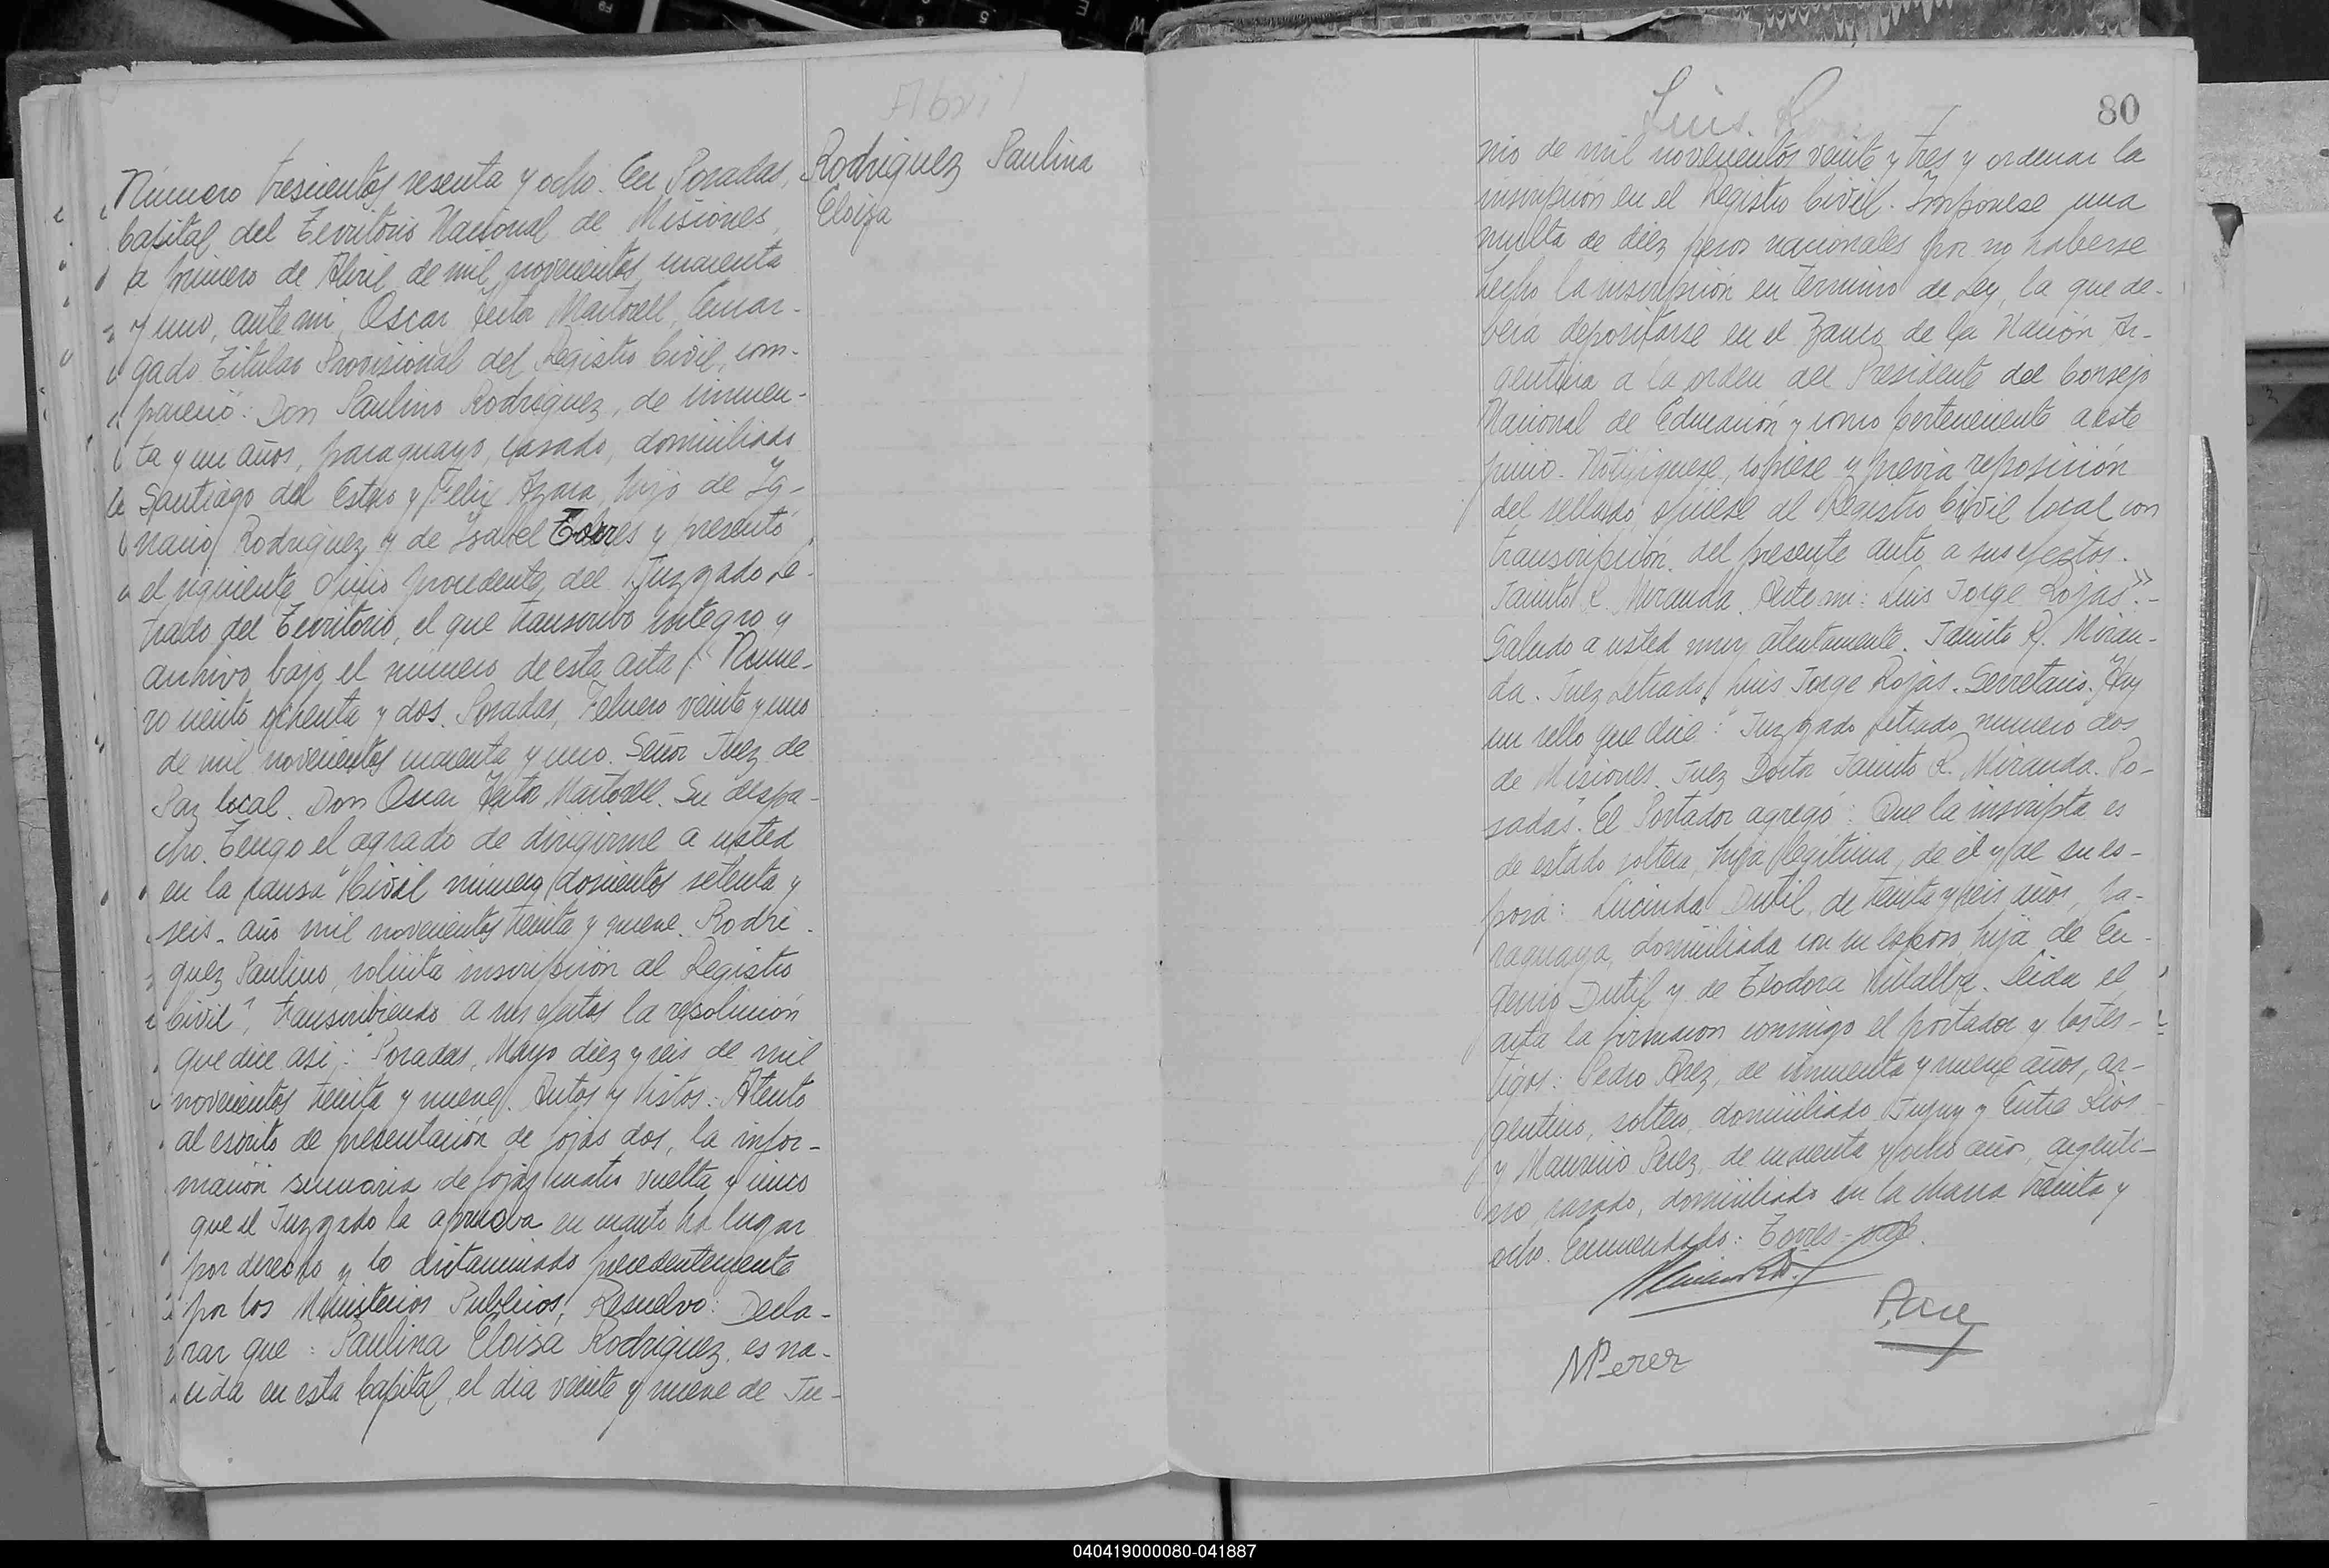 Abril
Rodriguez Paulina
Eloiza
Número trescientos sesenta y ocho. En Posadas,
Capital del Territorio Nacional de Misiones,
a primero de Abril de mil novecientos cuarenta
y uno, ante mi, Oscar Hector Martorell, Encar-
gado Titular Provisional del Registro Civil, com-
pareció: Don Paulino Rodriguez, de cincuen-
ta y un años, paraguayo, casado, domiciliado
Santiago del Estero y Felix Azara, hijo de Ig-
nacio Rodriguez y de Isabel Torres y presentó
el siguiente oficio procedente del Juzgado Le-
trado del Territorio, el que transcribo integro y
archivo bajo el número de esta acta: "Núme-
ro ciento ochenta y dos. Posadas, Febrero veinte y uno
de mil novecientos cuarenta y uno. Señor Juez de
Paz local. Don Oscar Hector Martorell. Su despa-
cho. Tengo el agrado de dirigirme a usted
en la causa "Civil número doscientos setenta y
seis - año mil novecientos treinta y nueve. Rodri-
guez Paulino, solicita inscripción al Registro
Civil", transcribiendo a sus efectos la resolución
que dice asi,: "Posadas, Mayo diez y seis de mil
novecientos treinta y nueve. Autos y Vistos: Atento
al escrito de presentación de fojas dos, la infor-
mación sumaria de fojas cuatro vuelta y cinco
que el Juzgado la aprueva en cuanto ha lugar
por derecho y lo dictaminado precedentemente
por los Ministerios Publicos, Resuelvo: Decla-
rar que: Paulina Eloisa Rodriguez, es na-
cida en esta Capital, el dia veinte y nueve de Ju-
80
Luis
nio de mil novecientos veinte y tres y ordenar la
inscripción en el Registro Civil. Imponese una
multa de diez pesos nacionales por no haberse
hecho la inscripción en termino de Ley, la que de-
berá depositarse en el Banco de la Nación Ar-
gentina a la orden del Presidente del Consejo
Nacional de Educación y como perteneciente a este
juicio. Notifiquese, copiese y previa reposición
del sellado, oficiese al Registro Civil local con
transcripción del presente auto a sus efectos.
Jacinto R. Miranda. Ante mi: Luis Jorge Rojas".-
Saludo a usted muy atentamente. Jacinto R. Miran-
da. Juez Letrado. Luis Jorge Rojas. Secretario. Hay
un sello que dice: "Juzgado Letrado número dos
de Misiones. Juez Doctor Jacinto R. Miranda. Po-
sadas". El Portador agregó: Que la inscripta es
de estado soltera, hija legitima de él y de su es-
posa: Lucinda Dutil, de treinta y seis años, pa-
raguaya, domiciliada con su esposo hija de Eu-
genio Dutil y de Teodora Villalba. Leida el
acta la firmaron conmigo el portador y los tes-
tigos: Pedro Arez, de cincuenta y nueve años, ar-
gentino, soltero, domiciliado Jujuy y Entre Rios
y Mauricio Perez, de cuarenta y ocho años, argenti-
no, casado, domiciliado en la chacra treinta y
ocho. Enmendado: Torres - vale.
MPerez